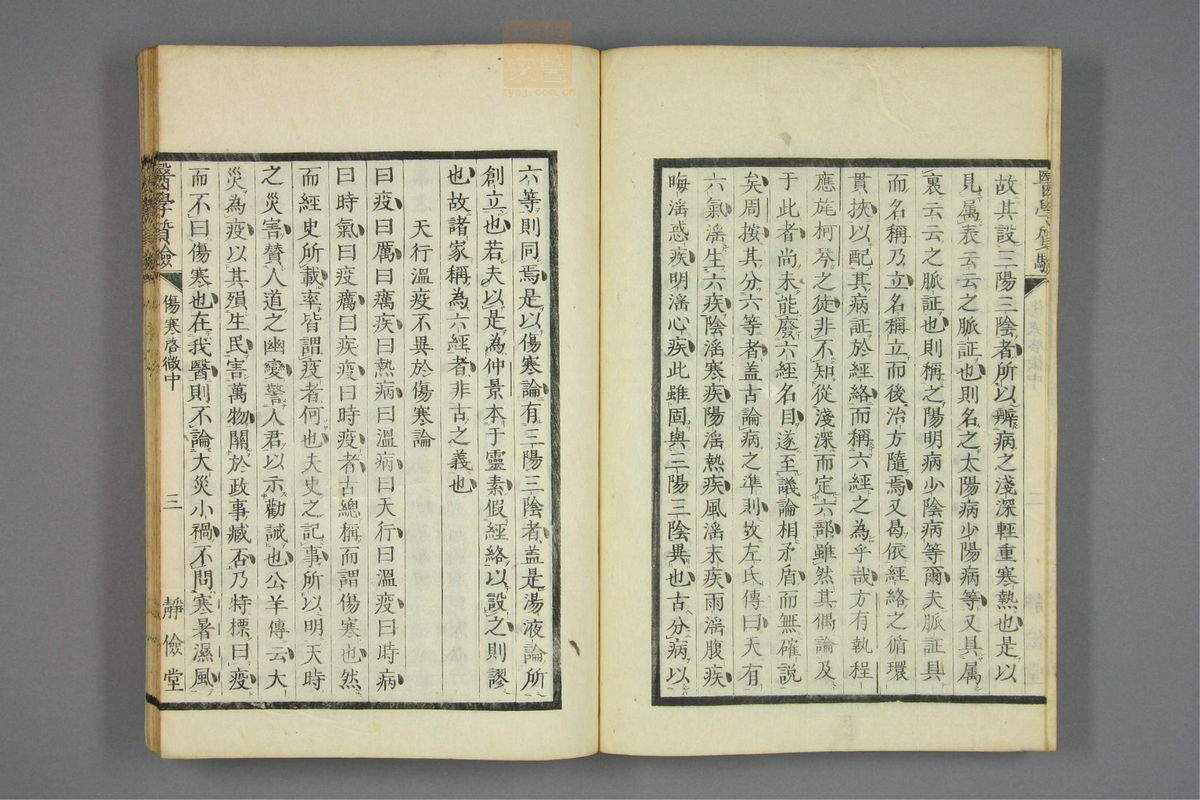 故其設三陽三陰者所以辨病之淺深輕重寒熱也是以
見属表云云之脈証也則名之太陽病少陽病等又具属
裏云云之脈証也則稱之陽明病少陰病等爾夫脈証具
而名稱乃立名稱立而後治方隨焉又曷依經絡之循環
貫挾以配其病証於經絡而稱六經之為乎哉方有執程
應旄柯琴之徒非不知從淺深而定六部雖然其偶論及
于此者尚未能廢六經名目遂至議論相矛盾而無確説
矣周按其分六等者蓋古論病之準則攷左氏傳曰天有
六氣淫生六疾陰淫寒疾陽淫熱疾風淫末疾雨淫腹疾
晦淫惑疾明淫心疾此雖固與三陽三陰異也古分病以
六等則同焉是以傷寒論有三陽三陰者蓋是湯液論所
創立也若夫以是為仲景本于靈素假經絡以設之則謬
也故諸家稱為六經者非古之義也
天行溫疫不異於傷寒論
曰疫曰厲曰癘疾曰熱病曰溫病曰天行曰溫疫曰時病
曰時氣曰疫癘曰疾疫曰時疫者古總稱而謂傷寒也然
而經史所載率皆謂疫者何也夫史之記事所以明天時
之災害贊人道之幽變警人君以示勸誡也公羊傳云大
災為疫以其殞生民害萬物關於政事臧否乃特標曰疫
而不曰傷寒也在我醫則不論大災小禍不問寒暑濕風
醫學質驗
傷寒啓微中
三
靜儉堂